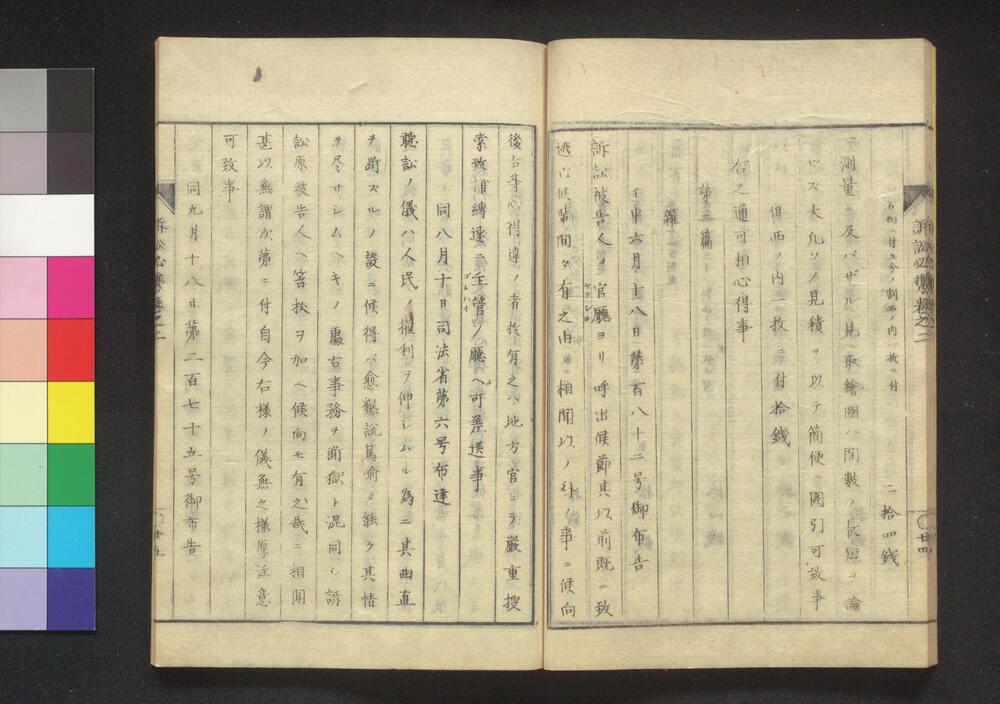 訴訟必携巻之二
〇廿四
右同付上今ノ罰両ノ内一枚ニ付 二拾四銭
測量ニ及バザル見取絵図ハ間数ノ長短ヲ論
ゼズ大凡ソノ見積ヲ以テ簡便ニ図引可致事
但西ノ内一枚ニ付拾銭
右之通可相心得事
第二篇
雑
壬申六月十八日第百八十二号御布告
訴訟被告人ヲ官庁ヨリ呼出候節其以前既ニ致
逃亡候輩間々有之由ニ相聞以ノ外ノ事ニ候向
後右等心得違ノ者於有之ハ地方官ニテ厳重捜
索致捕縛速ニ主管ノ庁ヘ可差送事
同八月十日司法省第六号布達
聴訟ノ儀ハ人民ノ権利ヲ伸シムル為ニ其曲直
ヲ断ズルノ設ニ候得バ愈懇説篤喩メ能ク其情
ヲ尽サシムヘキノ処右事務ヲ断獄ト混同シ訴
訟原被告人ヘ笞杖ヲ加ヘ候向モ有之哉ニ相聞
甚以無謂次第ニ付自今右様ノ儀無之様厚注意
可致事
同九月十八日第二百七十五号御布告
訴訟必携巻之二
〇廿五